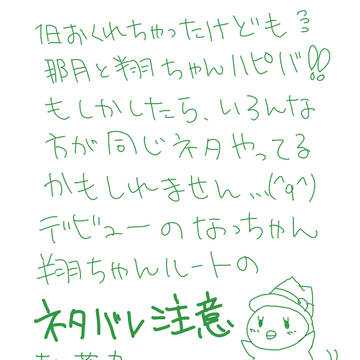 1日おくれちゃったけども
那月と翔ちゃんハピバ!!
もしかしたら、いろんな
方が同じネタやってる
かもしれません、、、(^q^)
デビューのなっちゃん
翔ちゃんルートの
ネタバレ注意